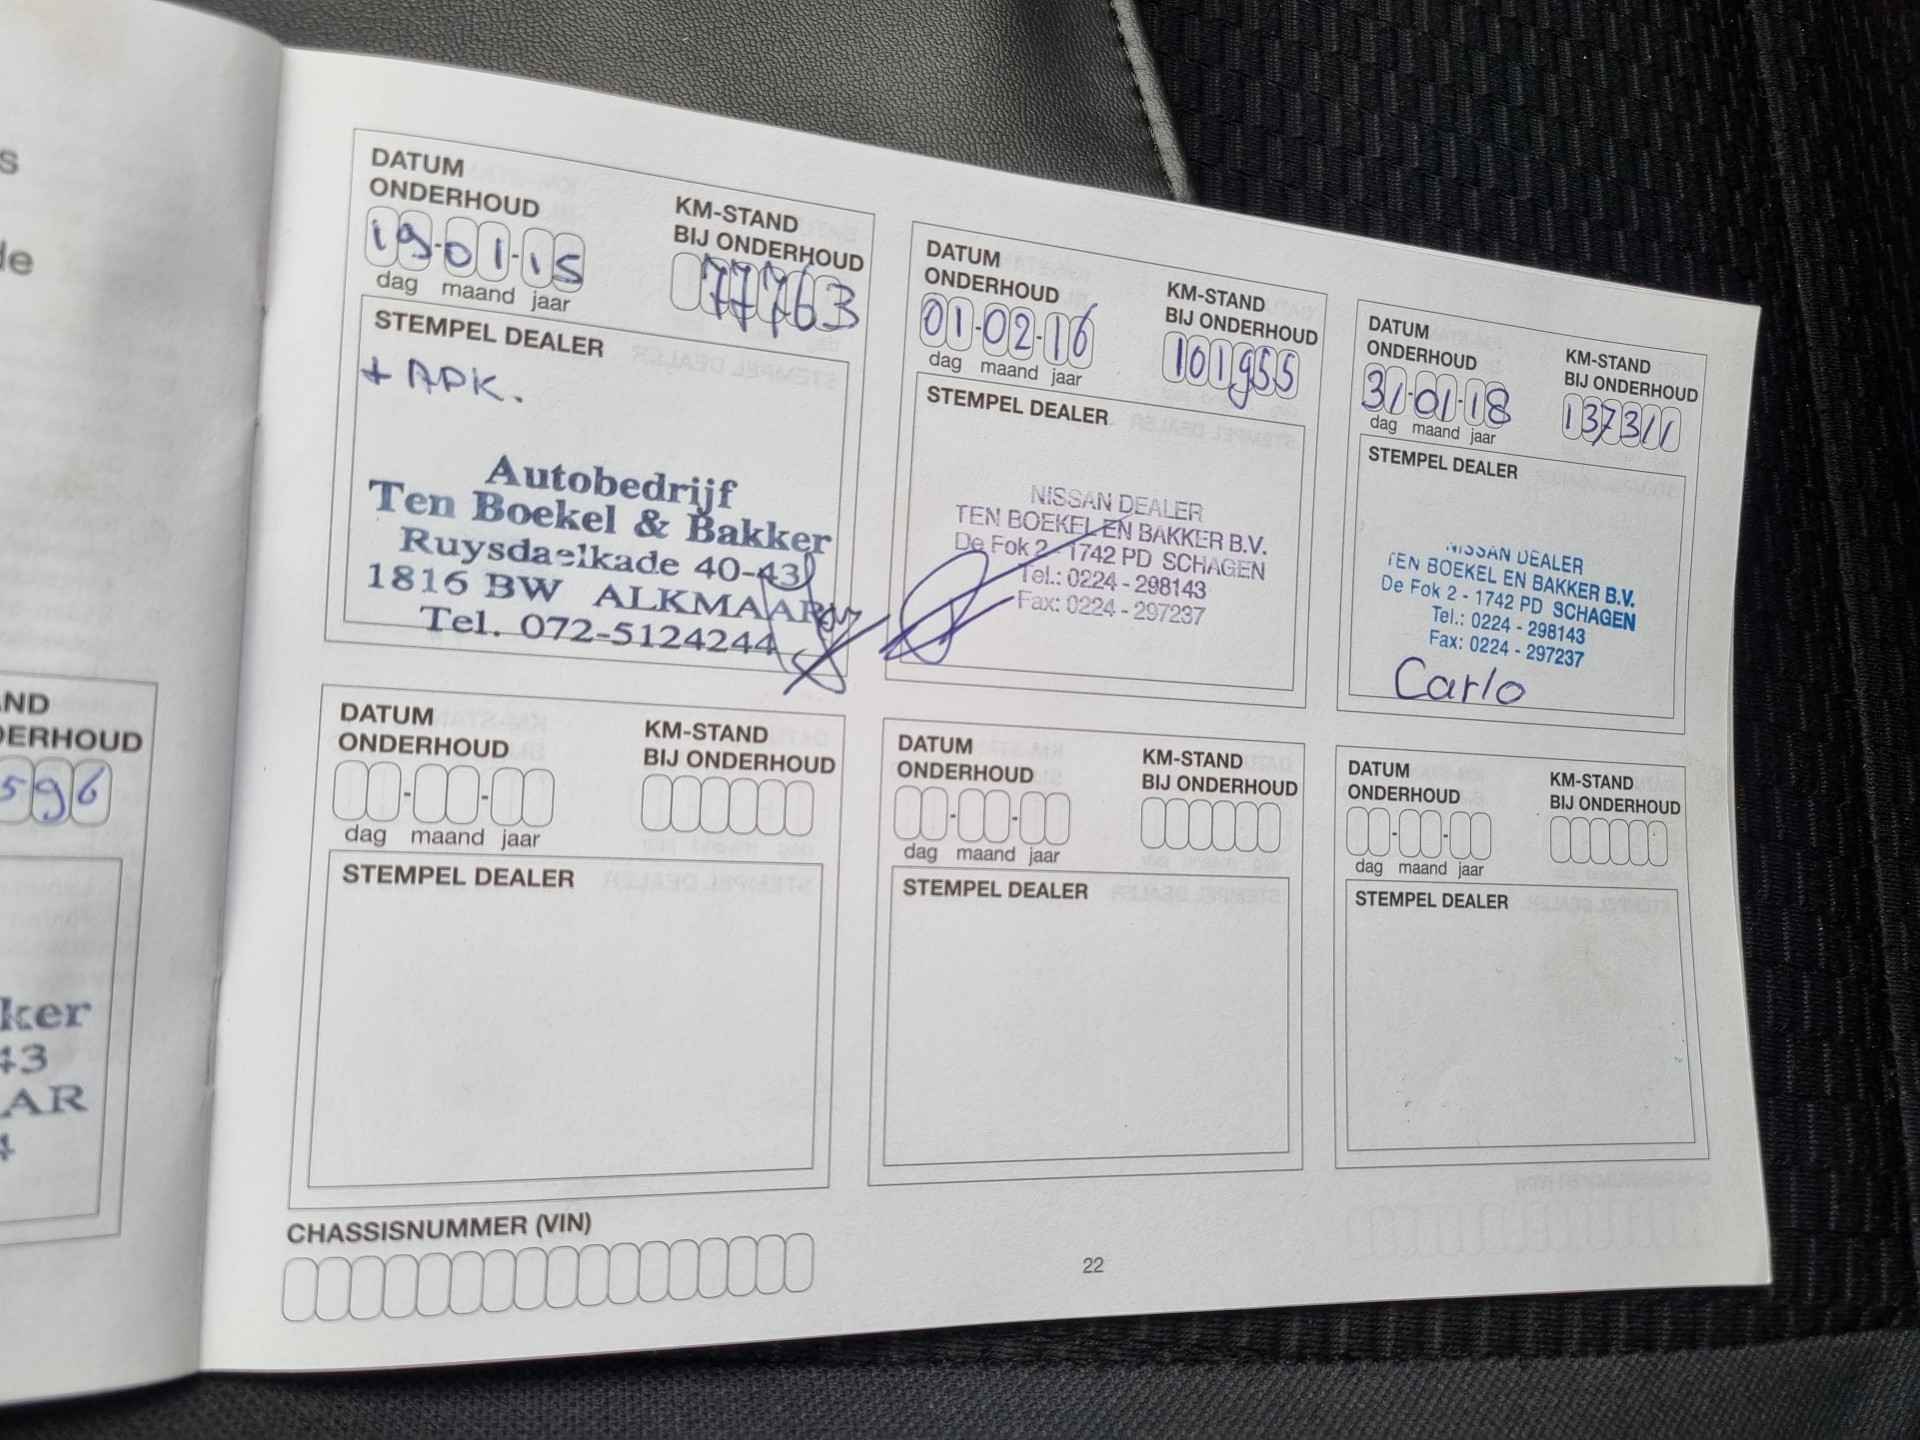 s
de
AND
DERHOUD
596
ker
43
AAR
4
DATUM
ONDERHOUD
19-01-15
dag maand jaar
KM-STAND
BIJ ONDERHOUD
77763
STEMPEL DEALER
+ APK.
Autobedrijf
Ten Boekel & Bakker
Ruysdaelkade 40-43
1816 BW ALKMAAR
Tel. 072-5124244
DATUM
ONDERHOUD
01-02-16
dag maand jaar
KM-STAND
BIJ ONDERHOUD
101955
STEMPEL DEALER
NISSAN DEALER
TEN BOEKEL EN BAKKER B.V.
De Fok 2 - 1742 PD SCHAGEN
Tel.: 0224 - 298143
Fax: 0224 - 297237
DATUM
ONDERHOUD
31-01-18
dag maand jaar
KM-STAND
BIJ ONDERHOUD
137311
STEMPEL DEALER
NISSAN DEALER
TEN BOEKEL EN BAKKER B.V.
De Fok 2 - 1742 PD SCHAGEN
Tel.: 0224 - 298143
Fax: 0224 - 297237
Carlo
DATUM
ONDERHOUD
dag maand jaar
KM-STAND
BIJ ONDERHOUD
STEMPEL DEALER
DATUM
ONDERHOUD
dag maand jaar
KM-STAND
BIJ ONDERHOUD
STEMPEL DEALER
DATUM
ONDERHOUD
dag maand jaar
KM-STAND
BIJ ONDERHOUD
STEMPEL DEALER
CHASSISNUMMER (VIN)
22